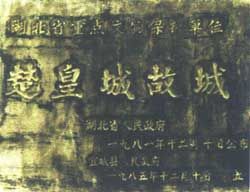 湖北省重点文物保护单位
楚皇城故城
湖北省人民政府
一九八一年十二月 十日公布
宜城县人民政府
一九八五年十二月十日 立